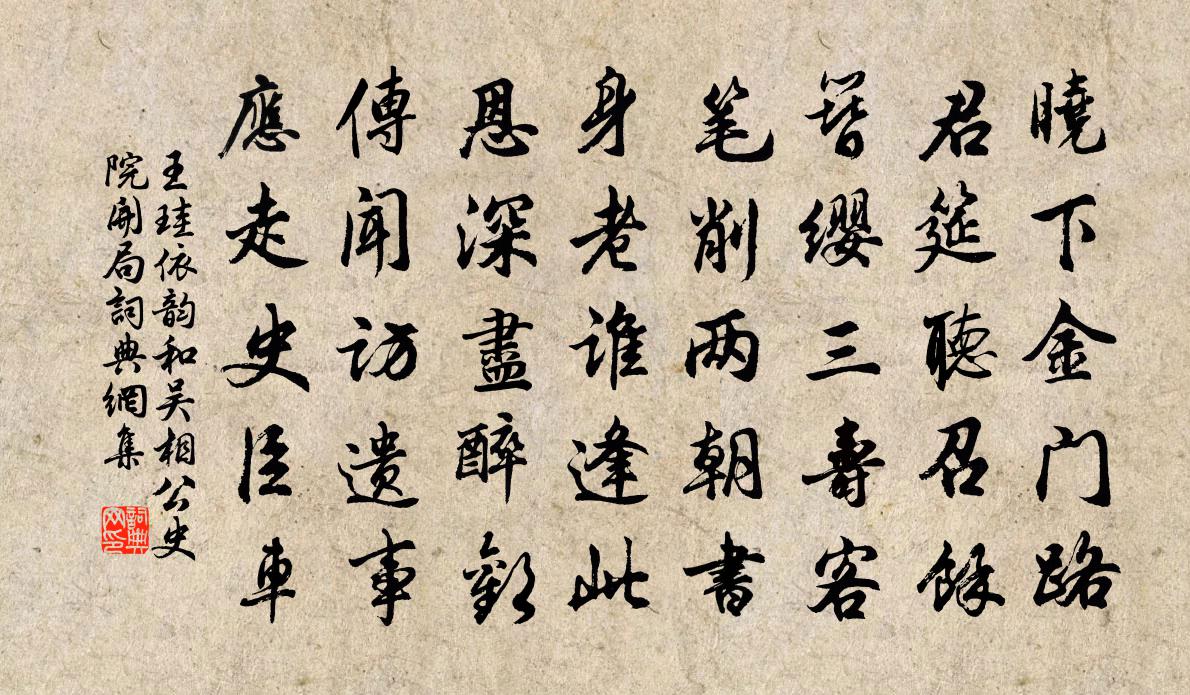 曉下金门路
君筵聽召餘
簪纓三壽客
笔削两朝書
身老誰逢此
恩深盡醉歟
傳闻訪遗事
應走史臣車
王珪依韵和吴相公史
院開局詞典網集
詞典网印